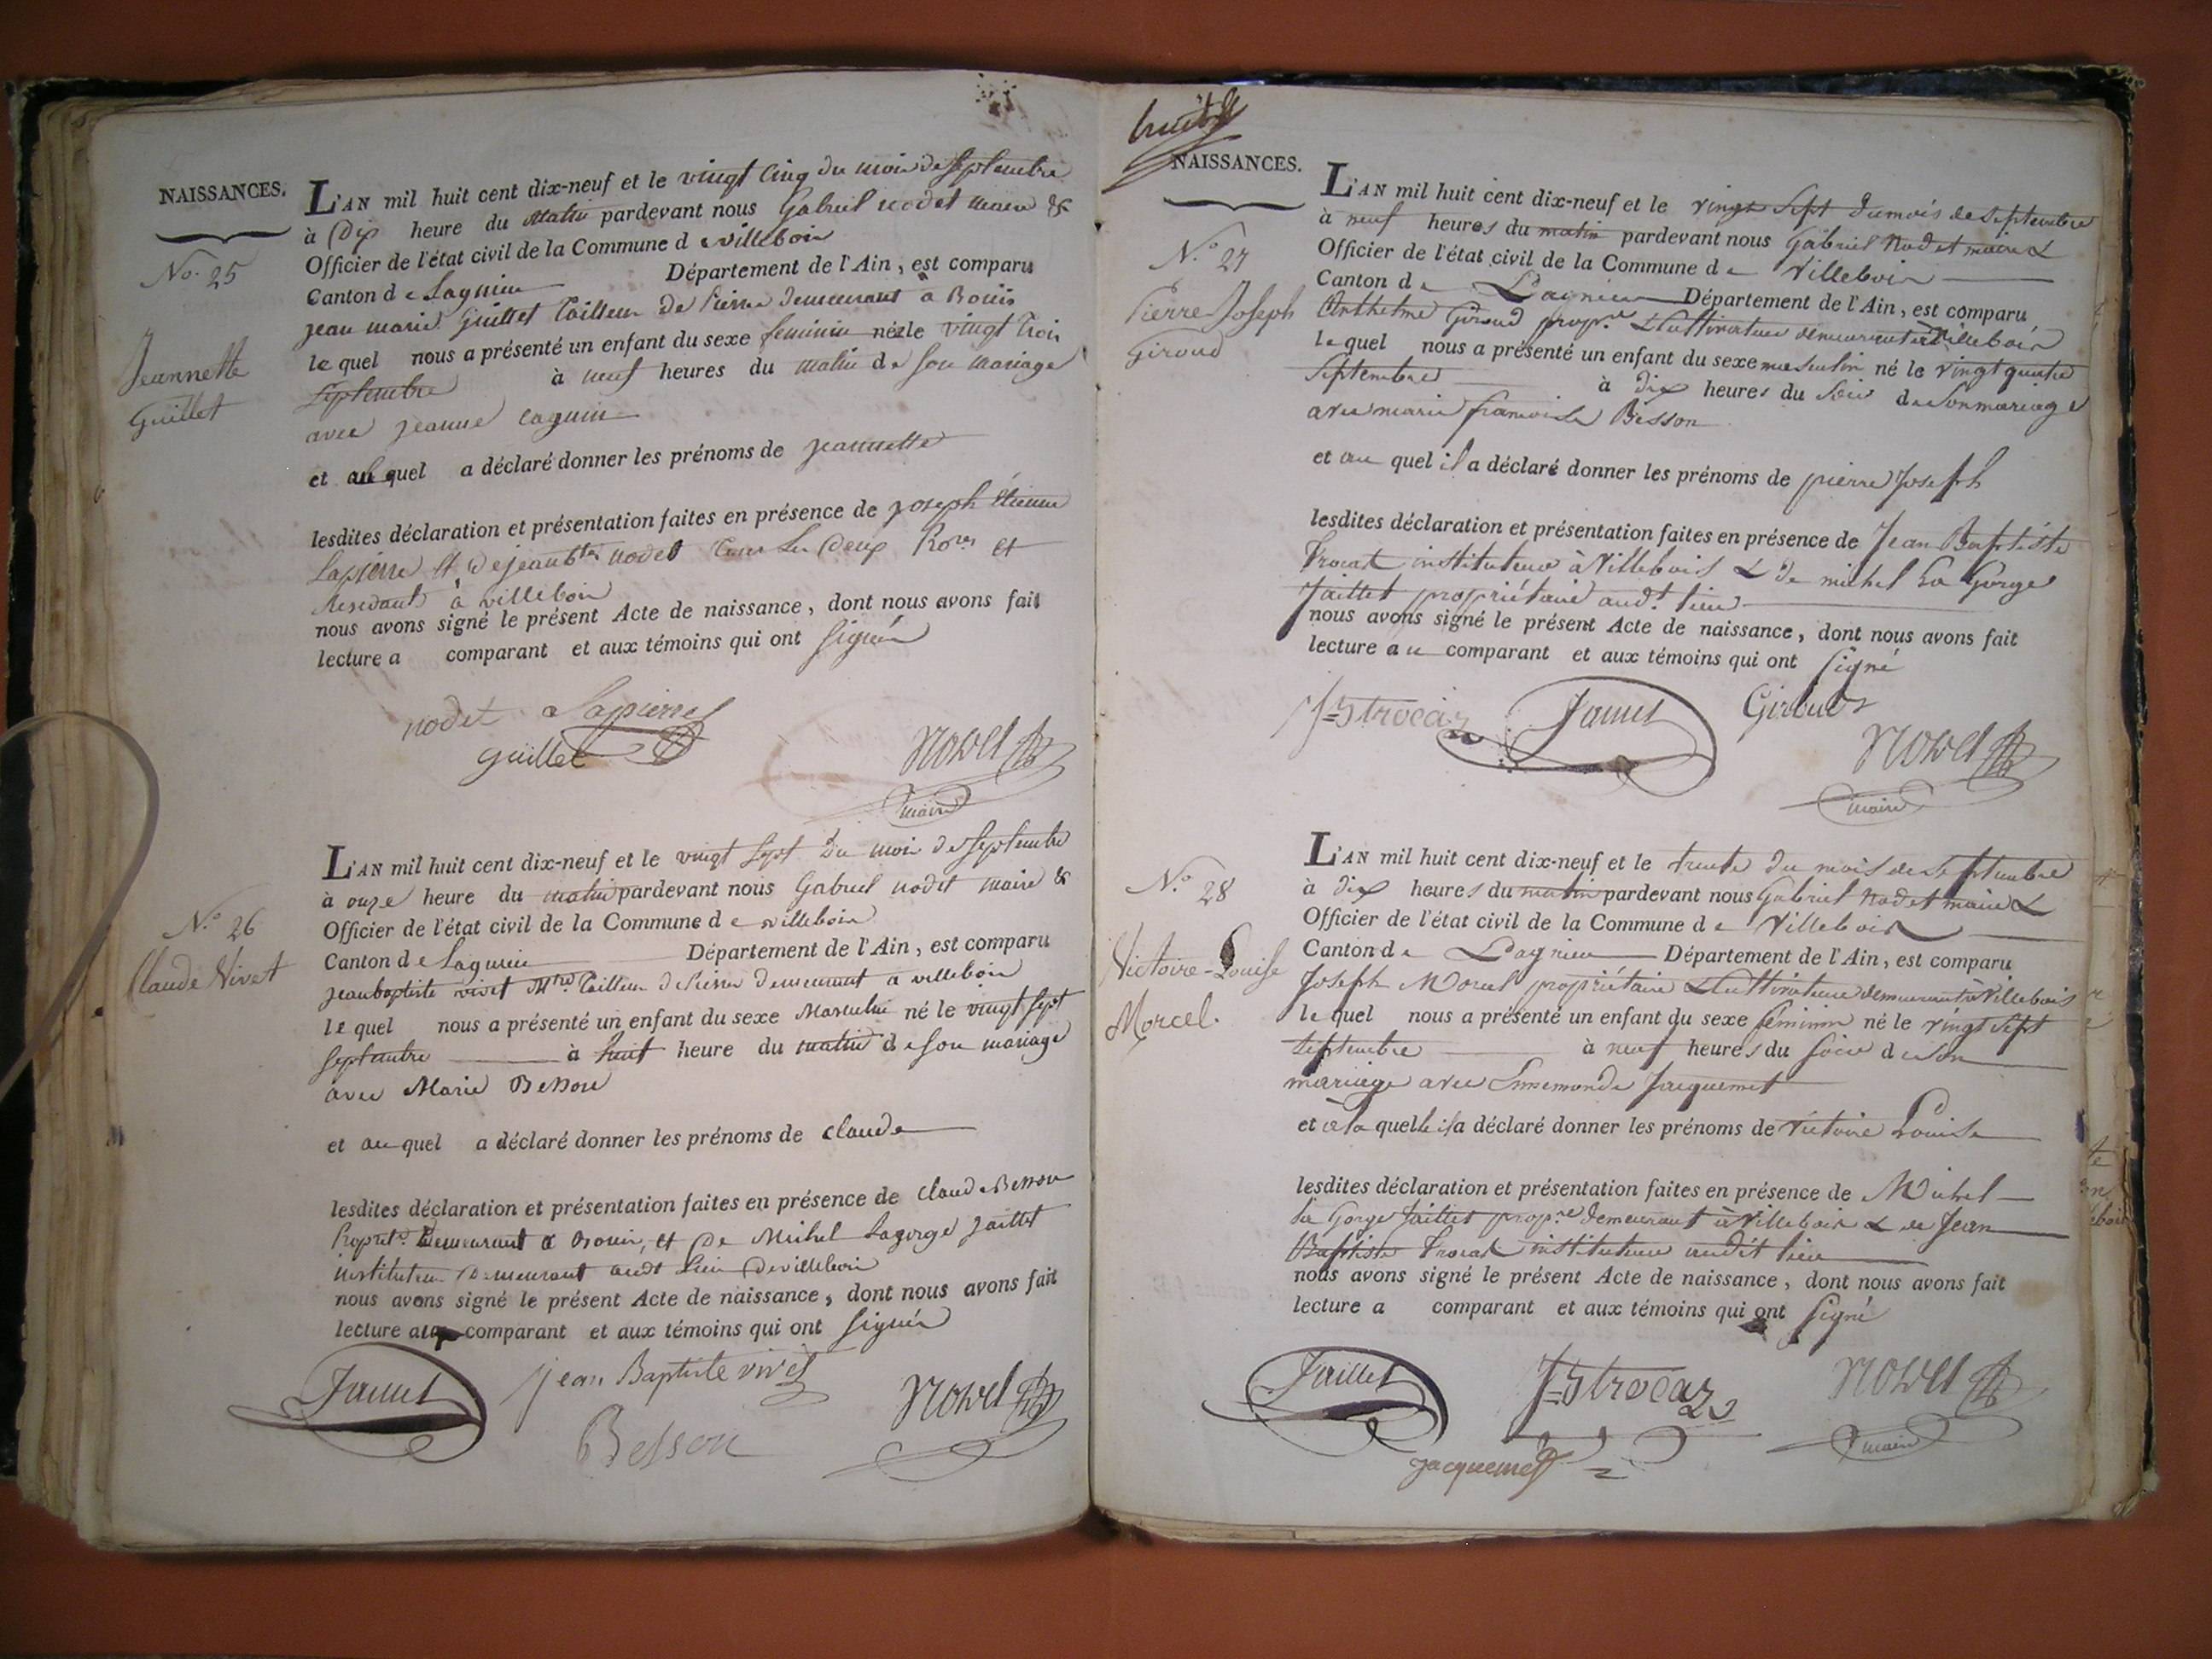 NAISSANCES.
No. 25
Jeannette
Guillet
L'AN mil huit cent dix-neuf et le vingt cinq du mois de septembre
à Dix heure du matin pardevant nous Gabriel nodet maire &
Officier de l'état civil de la Commune d e villebois
Canton d e Lagnieu Département de l'Ain, est comparu
jean marie Guillet Tailleur de Pierre demeurant à Bouis
le quel nous a présenté un enfant du sexe feminin née le vingt trois
septembre à neuf heures du matin de son mariage
avec jeanne caguin
et auquel a déclaré donner les prénoms de jeannette
lesdites déclaration et présentation faites en présence de joseph Étienne
Lapierre et de jean bte nodet tous les deux et
residants à villebois
nous avons signé le présent Acte de naissance, dont nous avons fait
lecture a comparant et aux témoins qui ont signés
nodet Lapierre
guillet
NODET
maire
No. 26
Claude Vivet
L'AN mil huit cent dix-neuf et le vingt sept du mois de septembre
à onze heure du matin pardevant nous Gabriel nodet maire &
Officier de l'état civil de la Commune d e villebois
Canton d e Lagnieu Département de l'Ain, est comparu
jean baptiste vivet Tailleur de Pierre demeurant à villebois
le quel nous a présenté un enfant du sexe Masculin né le vingt sept
septembre à huit heure du matin de son mariage
avec Marie Besson
et au quel a déclaré donner les prénoms de claude
lesdites déclaration et présentation faites en présence de claude Besson
Demeurant a Bouis, et de Michel Lagorge jaillet
instituteur Demeurant audt Lieu de villebois
nous avons signé le présent Acte de naissance, dont nous avons fait
lecture au comparant et aux témoins qui ont signés
Jaillet jean Baptiste vivet
Besson
NODET
NAISSANCES.
No. 27
Pierre Joseph
Giroud
L'AN mil huit cent dix-neuf et le vingt sept du mois de septembre
à neuf heures du matin pardevant nous Gabriel Nodet maire &
Officier de l'état civil de la Commune d e Villebois
Canton d e Lagnieu Département de l'Ain, est comparu
Anthelme Giroud propre. & Cultivateur demeurant à Villebois
le quel nous a présenté un enfant du sexe masculin né le vingt quatre
septembre à dix heures du soir de son mariage
avec marie françoise Besson
et au quel il a déclaré donner les prénoms de pierre joseph
lesdites déclaration et présentation faites en présence de Jean Baptiste
Trocat instituteur à Villebois & de michel La Gorge
Jaillet propriétaire audt. lieu
nous avons signé le présent Acte de naissance, dont nous avons fait
lecture au comparant et aux témoins qui ont signé
Jaillet Giroud
NODET
maire
No. 28
Victoire-Louise
Morcel.
L'AN mil huit cent dix-neuf et le trente du mois de septembre
à dix heures du matin pardevant nous Gabriel Nodet maire &
Officier de l'état civil de la Commune d e Villebois
Canton d e Lagnieu Département de l'Ain, est comparu
Joseph Morcel propriétaire & Cultivateur demeurant à Villebois
le quel nous a présenté un enfant du sexe féminin né le vingt sept
septembre à neuf heures du soir de son
mariage avec Ennemonde Jacquemet
et à la quelle il a déclaré donner les prénoms de victoire Louise
lesdites déclaration et présentation faites en présence de Michel
La Gorge Jaillet propre demeurant à Villebois & de Jean
Baptiste Trocat instituteur audit lieu
nous avons signé le présent Acte de naissance, dont nous avons fait
lecture a comparant et aux témoins qui ont signé
Jaillet NODET
maire
jacquemet